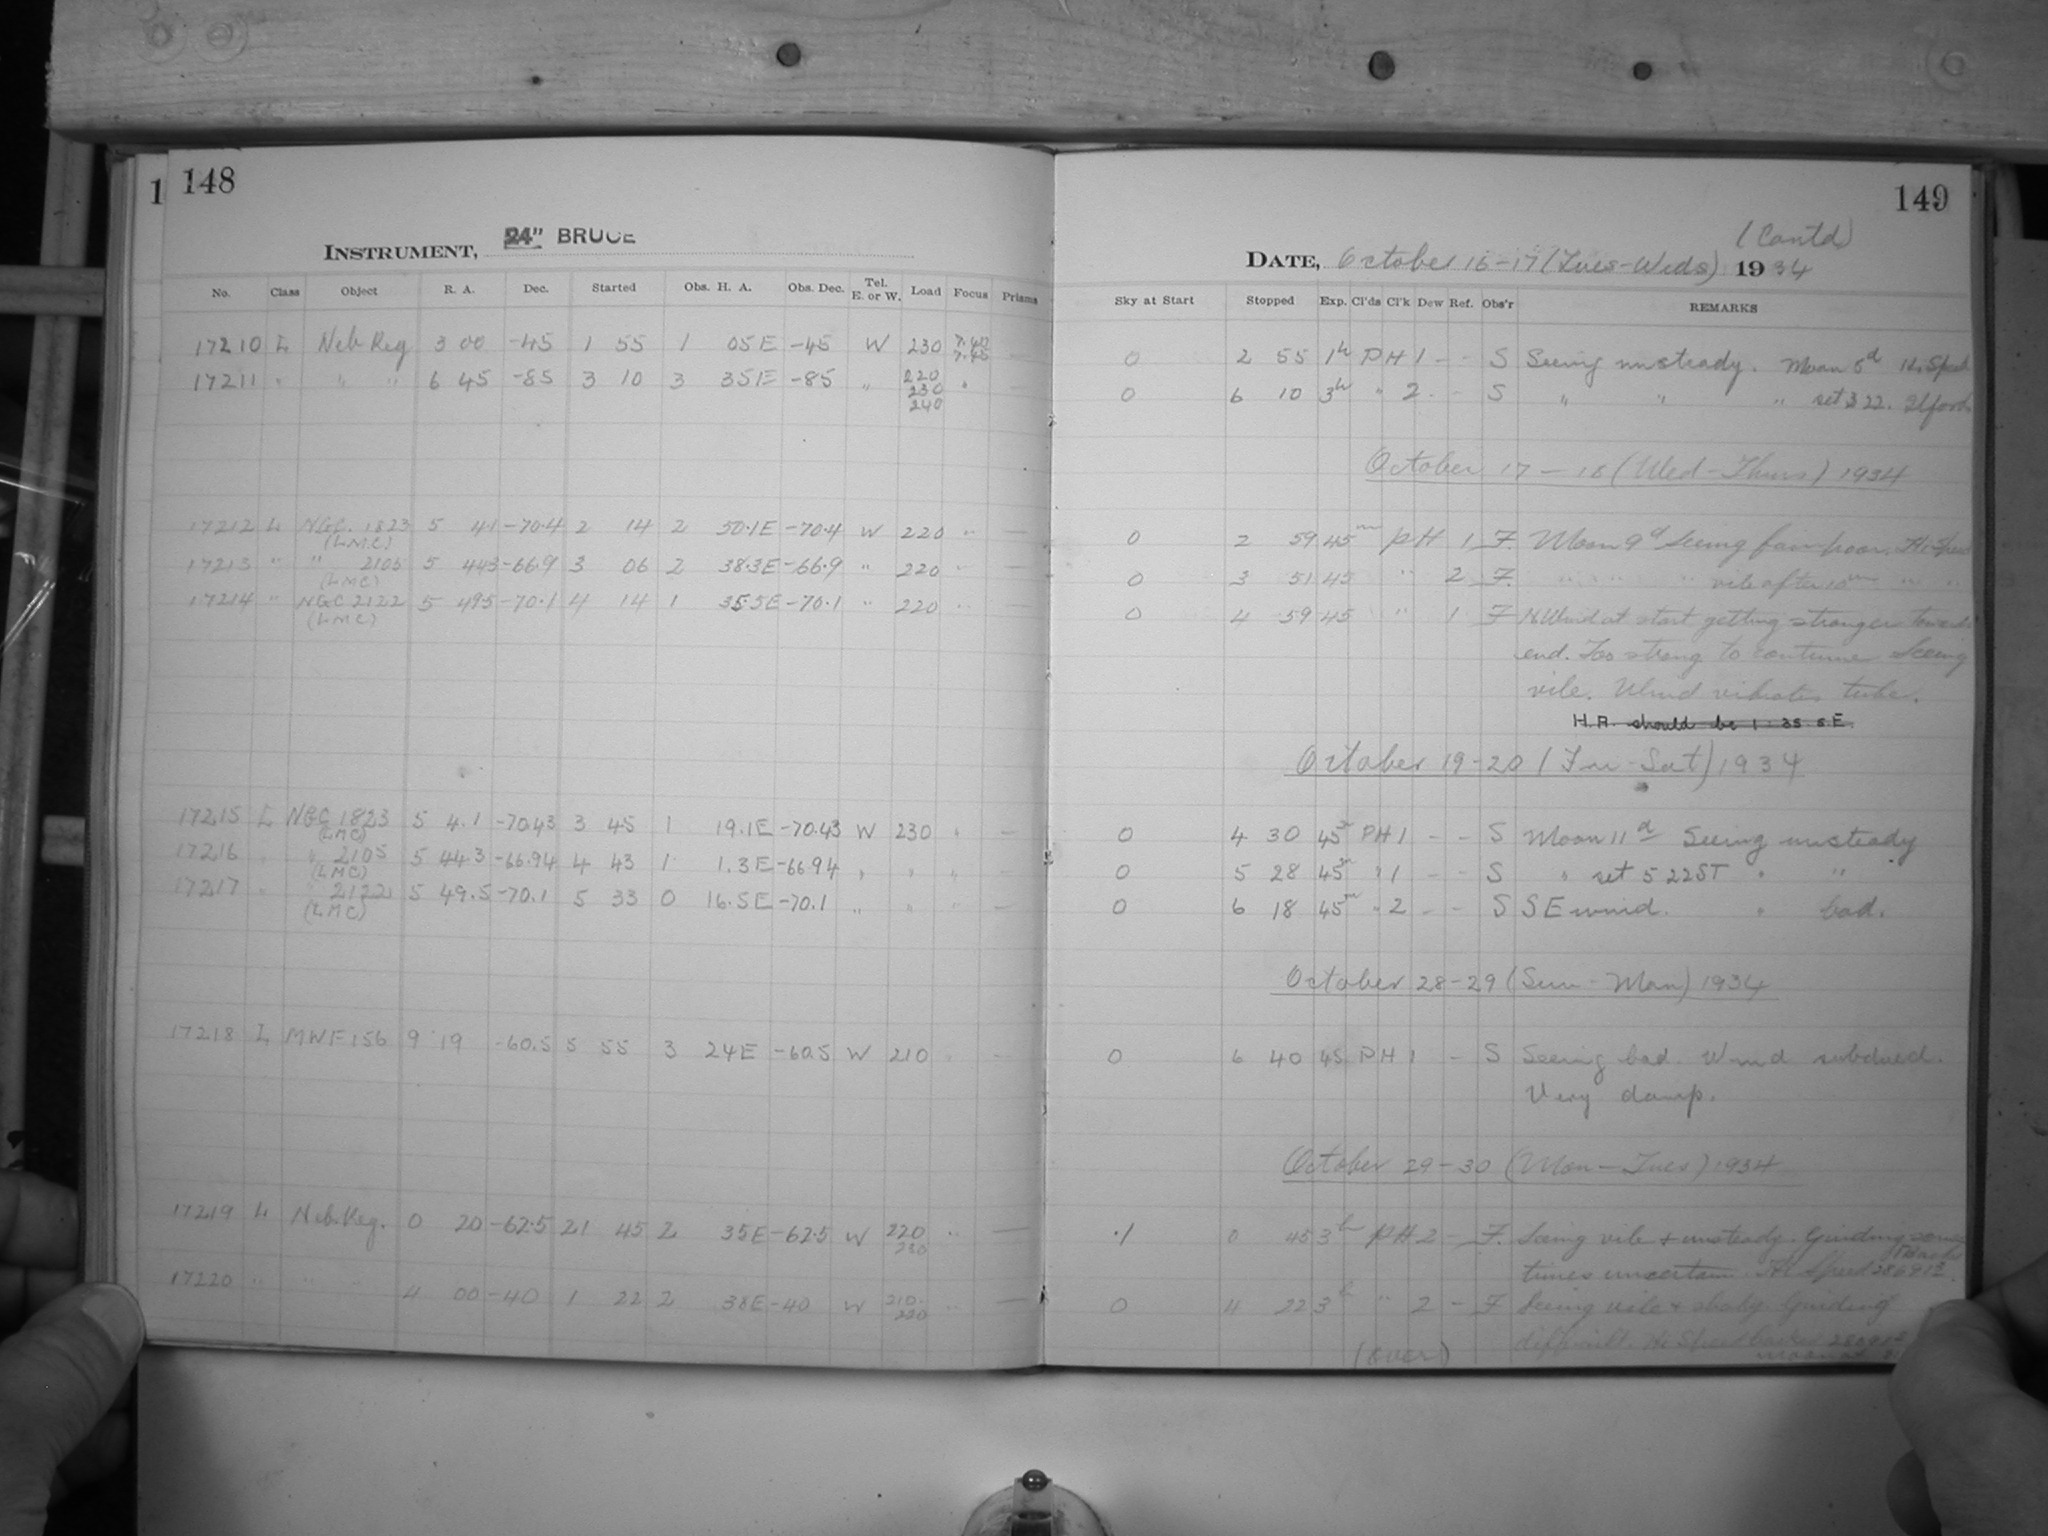 1 148
INSTRUMENT, 24" BRUCE
No. Class Object R. A. Dec. Started Obs. H. A. Obs. Dec. Tel. E. or W. Load Focus Prisms
17210 L Neb. Reg 3 00 -45 1 55 1 05E -45 W 230 7.40
7.45
17211 " " " 6 45 -85 3 10 3 35E -85 " 220 "
230
240
17212 L NGC. 1823 5 4.1 -70.4 2 14 2 50.1E -70.4 W 220 " —
(LMC)
17213 " " 2105 5 44.3 -66.9 3 06 2 38.3E -66.9 " 220 " —
(LMC)
17214 " NGC 2122 5 49.5 -70.1 4 14 1 35.5E -70.1 " 220 " —
(LMC)
17215 L NGC 1823 5 4.1 -70.43 3 45 1 19.1E -70.43 W 230 " —
(LMC)
17216 " " 2105 5 44.3 -66.94 4 43 1 1.3E -66.94 " " " —
(LMC)
17217 " " 2122 5 49.5 -70.1 5 33 0 16.5E -70.1 " " " —
(LMC)
17218 L MWF 156 9 19 -60.5 5 55 3 24E -60.5 W 210 " -
17219 L Neb. Reg. 0 20 -62.5 21 45 2 35E -62.5 W 220 " —
230
17220 " " " 4 00 -40 1 22 2 38E -40 W 210 " —
220
149
(Contd)
DATE, October 16-17 (Tues-Weds) 1934
Sky at Start Stopped Exp. Cl'ds Cl'k Dew Ref. Obs'r REMARKS
0 2 55 1h PH 1 - - S Seeing unsteady. Moon 8d H. Speed
0 6 10 3h " 2 - - S " " " set 3 22. Ilford
October 17-18 (Wed-Thurs) 1934
0 2 59 45m PH 1 F. Moon 9d Seeing fair-poor. Hi Speed
0 3 51 45 " 2 F. " " " " vile after 10m " "
0 4 59 45 " 1 F N Wind at start getting stronger towards
end. Too strong to continue Seeing
vile. Wind vibrates tube.
H.A. should be 1 35.5 E
October 19-20 (Fri-Sat) 1934
0 4 30 45m PH 1 - - S Moon 11d Seeing unsteady
0 5 28 45m " 1 - - S " set 5 22 ST " "
0 6 18 45m " 2 - - S S E wind. " bad.
October 28-29 (Sun-Mon) 1934
0 6 40 45 PH 1 - S Seeing bad. Wind subdued.
Very damp.
October 29-30 (Mon-Tues) 1934
.1 0 45 3h PH 2 - F. Seeing vile & unsteady. Guiding some
times uncertain. Hi Speed
0 4 22 3h " 2 - F Seeing vile & shaky Guiding
difficult. Hi Speed
(over)